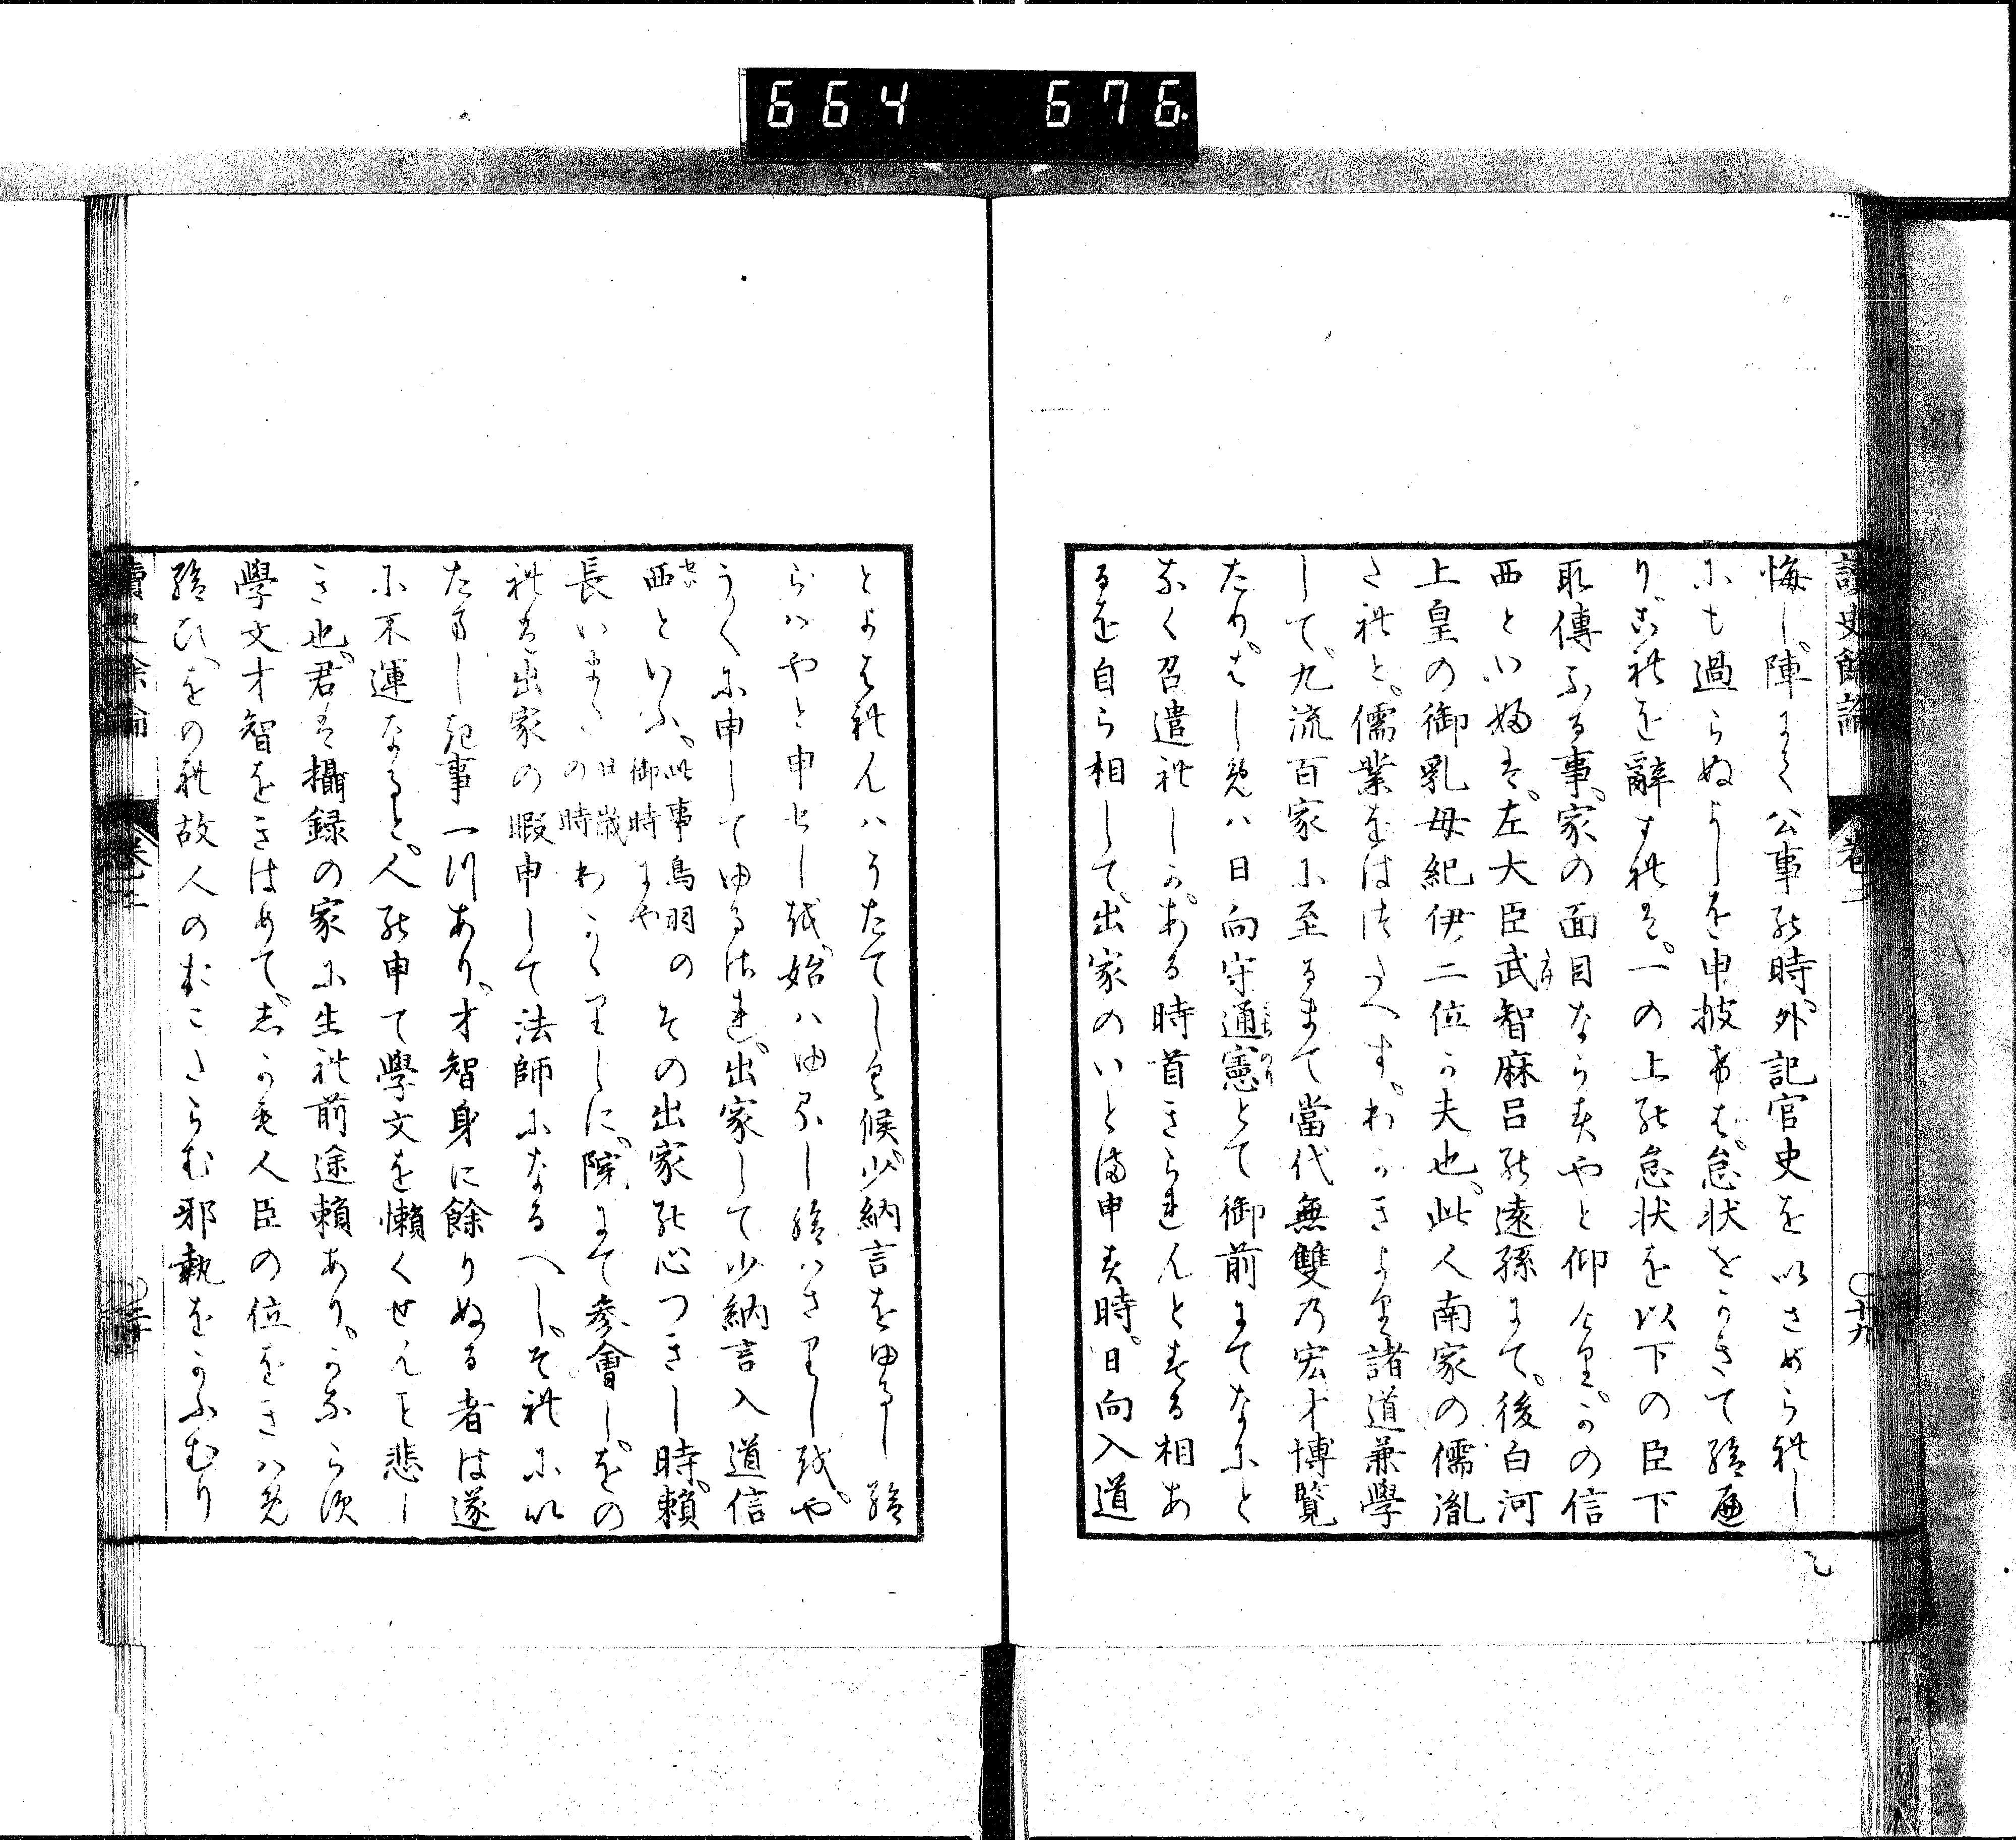 664 676
讀史餘論 卷二 ○十九
悔し。陣にて公事の時。外記官史をいさめられし
にも過らぬよしを申披けば。怠状をかきて給へ
り。これを辭すれば。一の上の怠状を以下の臣下
取傳ふる事。家の面目ならずやと仰ける。かの信
西といふは。左大臣武智麻呂の遠孫にて。後白河
上皇の御乳母紀伊ノ二位か夫也。此人南家の儒胤
されと。儒業をはつたへす。わかきより諸道兼學
して。九流百家に至るまて當代無雙の宏才博覽
たり。はしめハ日向守通憲とて御前にてなにと
なく召遣れしか。ある時首きられんとする相あ
るを自ら相して。出家のいとま申す時。日向入道
とよはれんハうたてしく候。少納言をゆるし給
らハやと申せしを。始ハゆるし給ハさりしを。や
うく に申してゆるされ。出家して少納言入道信
西といふ。此事鳥羽の御時にや その出家の心つきし時。賴
長いまた廿歳の時わかゝりしに。院にて參會し。をの
れは出家の暇申して法師になるへし。それにい
たましき事一つあり。才智身に餘りぬる者は遂
に不運なると。人の申て學文を懶くせんこと悲し
き也。君は攝録の家に生れ前途賴あり。かならす
學文才智をきはめて。しかも人臣の位をきハめ
給ひ。をのれ故人のむこさらむ邪執をかふむり
讀史餘論 卷二